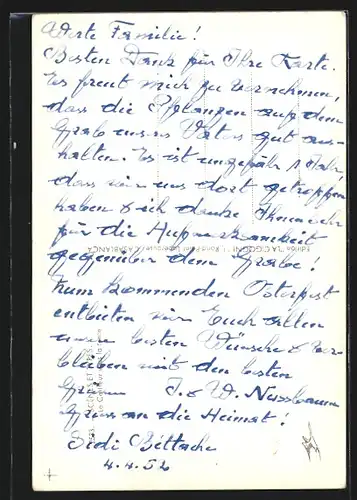 Werte Familie!
Besten Dank für Ihre Karte.
Es freut mich zu vernehmen,
dass die Pflanzen auf dem
Grab unsres Vaters gut aus-
halten. Es ist ungefähr 1 Jahr,
dass wir uns dort getroffen
haben & ich danke Ihnen sehr
für die Aufmerksamkeit
gegenüber dem Grabe!
Zum kommenden Osterfest
entbieten wir Euch allen
unsere besten Wünsche & ver-
bleiben mit den besten
Grüssen J. & W. Nussbaum
Gruss an die Heimat!
Sedi Bettache
4.4.52
"LA CIGOGNE"
CASABLANCA